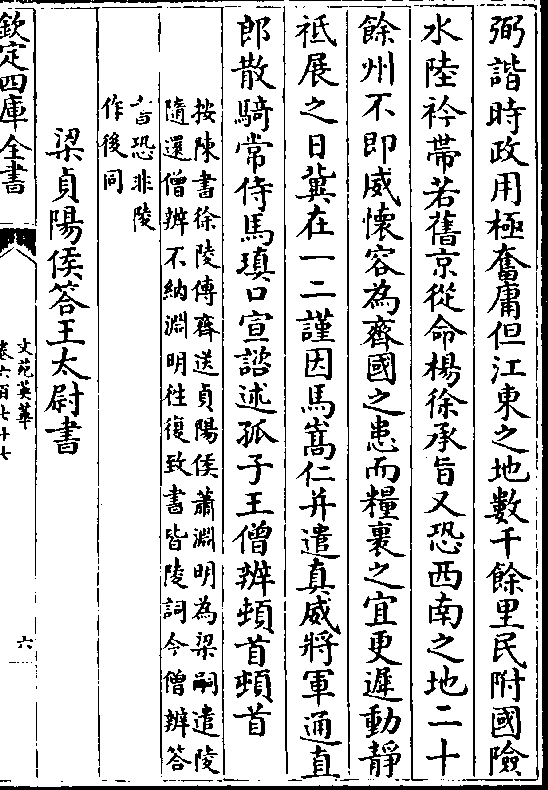 弼諧時政用極奮庸但江東之地數千餘里民附國險
水陸衿帶若舊京從命楊徐承旨又恐西南之地二十
餘州不即威懷容為齊國之患而糧裹之宜更遲動靜
祗展之日冀在一二謹因馬嵩仁并遣真威將軍通直
郎散騎常侍馬瑱口宣諮述孤子王僧辨頓首頓首
按陳書徐陵傳齊送貞陽侯蕭淵明為梁嗣遣陵
隨還僧辨不納淵明往復致書皆陵詞今僧辨答
書恐非陵
作後同
梁貞陽侯答王太尉書
欽定四庫全書
文苑英華
卷六百七十七
六